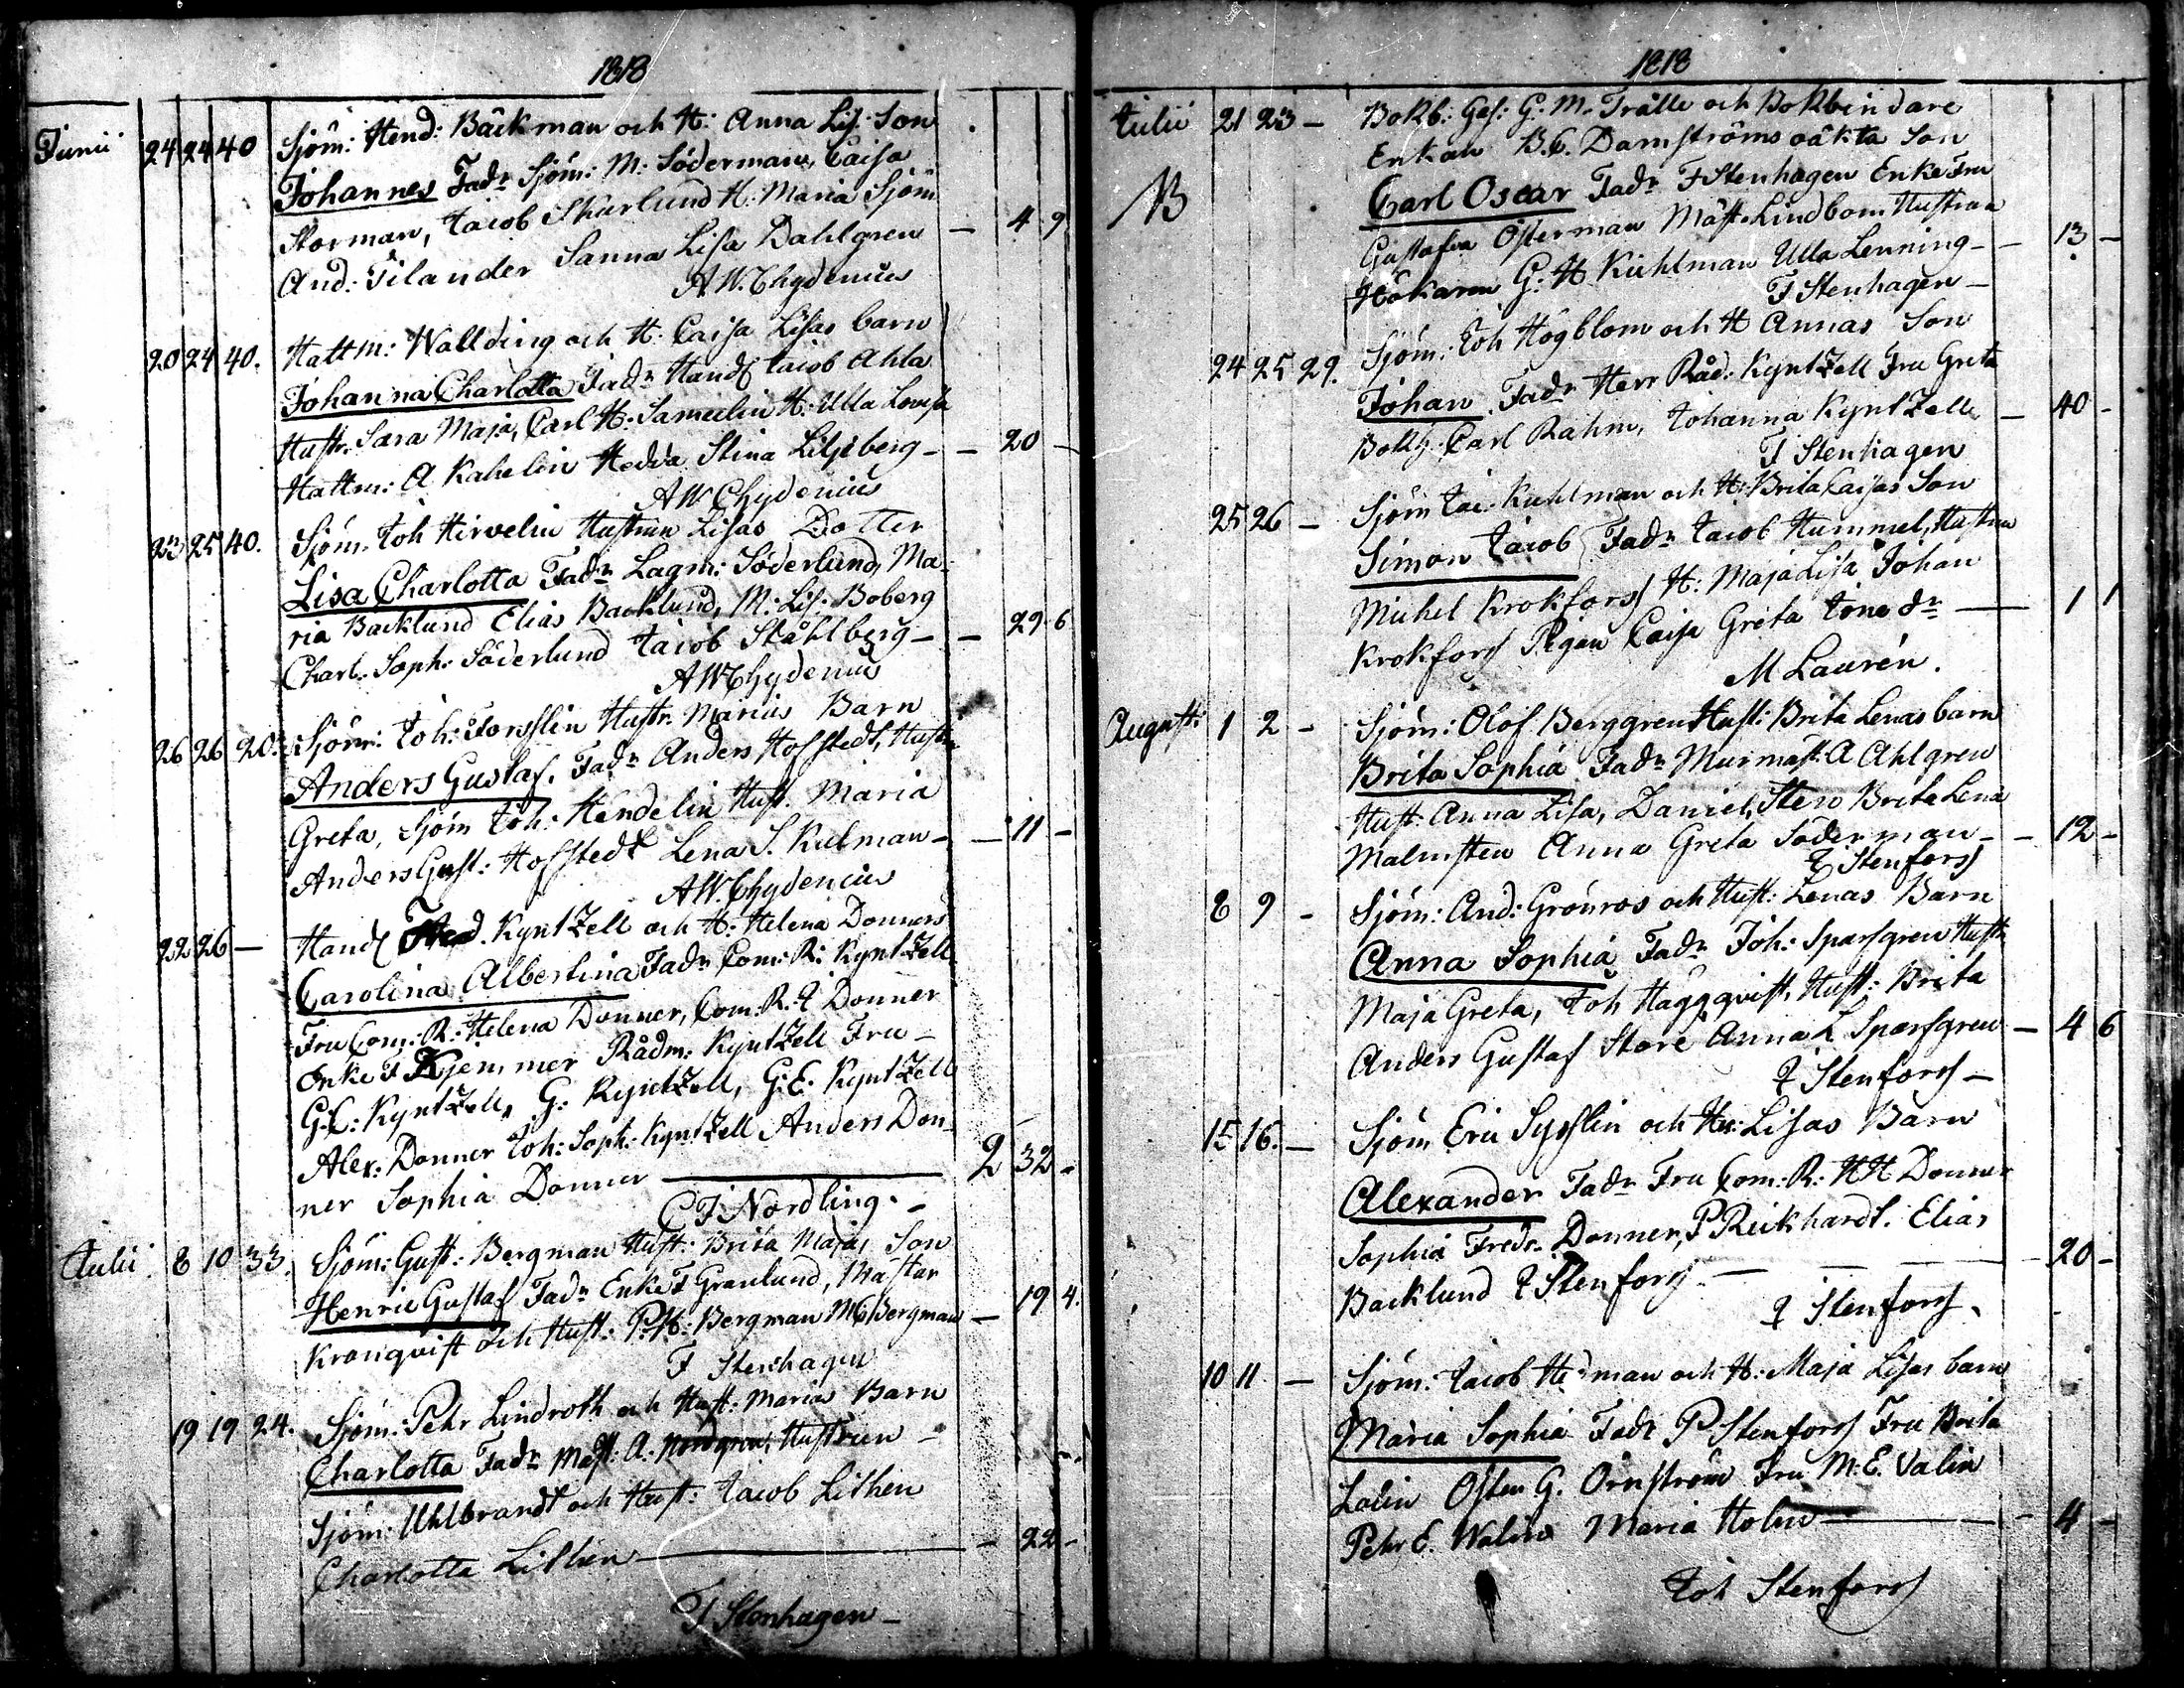 1818
Junii 24 24 40 Sjöm: Hend: Bäckman och H: Anna Lis: Son
Johannes Fadr Sjöm: M: Söderman, Caisa
Storman, Jacob Skarlund H: Maria Sjöm
And: Tilander Sanna Lisa Dahlgren — 4 9
AW. Chydenius
20 24 40. Hattm: Wallding och H: Caisa Lisas barn
Johanna Charlotta Fadr Handl Jacob Ahla
Hustr. Sara Maja, Carl H: Samelin H: Ulla Lovisa
Hattm: A Kahelin Hedda Stina Liljeberg — 20 —
AW Chydenius
23 25 40. Sjöm. Joh Hirvelin Hustrun Lisas Dotter
Lisa Charlotta Fadr Lagm: Söderlund, Ma-
ria Backlund Elias Backlund, M: Lis: Boberg
Charl. Soph: Söderlund Jacob Ståhlberg — 29 6
AW Chydenius
26 26 20. Sjöm: Joh: Forsslin Hustr. Marias Barn
Anders Gustaf. Fadr Anders Hofstedt, Hustr
Greta, Sjöm Joh: Hendelin Hust. Maria
Anders Gust: Hofstedt Lena S. Kulman — 11 —
AW. Chydenius
22 26 — Handl Kyntzell och H: Helena Donners
Carolina Albertina Fadr Com: R: Kyntzell
Fru Com: R: Helena Donner, Com: R: J Donner
Enke F Kjemmer Rådm: Kyntzell Fru
G.C: Kyntzell, G: Kyntzell, G:E. Kyntzell
Alex: Donner Joh: Soph: Kyntzell Anders Don-
ner Sophia Donner — 2 32 —
C J Nordling.
Julii 8 10 33. Sjöm: Gust: Bergman Hust: Brita Majas Son
Henric Gustaf Fadr Enke F Granlund, Mästar
Kronqvist och Hust: P:H: Bergman M: Bergman — 19 4.
F Stenhagen
19 19 24. Sjöm: Pehr Lindroth och Hust: Marias Barn
Charlotta Fadr Mäst. A. Nordgren, Hustrun
Sjöm: Uhlbrandt och Hust: Jacob Lithen
Charlotta Lithen — 22 —
F Stenhagen —
1818
Julii 21 23 — Bokb: Ges: G: M. Tralle och Bokbindare
Enkan B.C. Damströms oäkta Son
NB Carl Oscar Fadr F Stenhagen Enke Fru
Gustafva Österman Mäst. Lindbom Hustrun
Hökaren G: H Kuhlman Ulla Lenning — 13 —
F Stenhagen —
24 25 29. Sjöm: Joh Högblom och H Annas Son
Johan. Fadr Herr Råd: Kyntzell Fru Greta
Bokh: Carl Rahm, Johanna Kyntzell — 40 —
F Stenhagen
25 26 — Sjöm Jac. Kuhlman och H: Brita Caisas Son
Simon Jacob Fadr Jacob Hummel, Hustru
Michel Krokfors H: Maja Lisa Johan
Krokfors Pigan Caisa Greta dr — 1 1
M Laurén.
August: 1 2 — Sjöm: Olof Berggren Hust: Brita Lenas barn
Brita Sophia Fadr Murmäst. A Ahlgren
Hust. Anna Lisa, Daniel Sten Brita Lena
Malmsten Anna Greta Söderman — 12 —
J Stenfors
8 9 — Sjöm: And: Grönros och Hust: Lenas Barn
Anna Sophia Fadr Joh: Sparfgren Hustr
Maja Greta, Joh Haggqvist, Hust: Brita
Anders Gustaf Store Anna L Sparfgren — 4 6
J Stenfors —
15 16. — Sjöm Eric Sysslin och Hu: Lisas Barn
Alexander Fadr Fru Com: R: H H Donner
Sophia Fredr. Donner, P Reikhardt. Elias
Backlund J Stenfors — 20 —
J Stenfors.
10 11 — Sjöm: Jacob Hedman och H: Maja Lisas barn
Maria Sophia Fadr P Stenfors Fru Brita
Lalin Osten G. Örnström Fru M:E. Valin
Pehr E. Walin Maria Holm — 4 —
Joh Stenfors